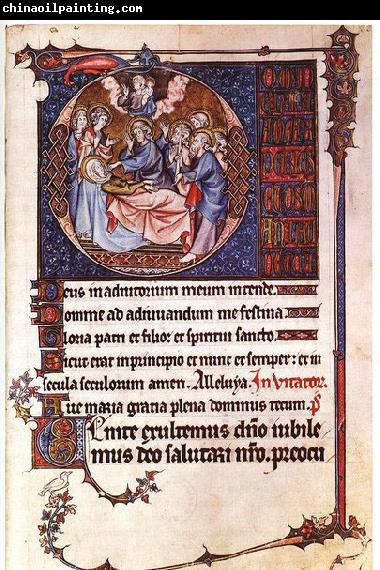 chinaoilpainting.com
Deus in adiutorium meum intende.
Domine ad adiuuandum me festina.
Gloria patri et filio: et spiritui sancto.
Sicut erat in principio et nunc et semper: et in
secula seculorum amen. Alleluya. Inuitator.
Aue maria gratia plena dominus tecum. p̄s
Uenite exultemus dn̄o iubile
mus deo salutari nr̄o. preoccu